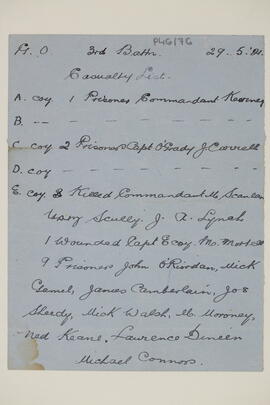 P46/76
H. O. 3rd Battn. 29.5.'21.
Casualty List.
A. coy. 1 Prisoner Commandant Kearney
B. -- - - - -
C coy 2 Prisoners Capt O'Grady J. Carroll
D. coy - - - -
E. coy 3 Killed Commandant Scanlan
Scully J. A. Lynch
1 Wounded Capt E coy. Mo.
9 Prisoners John O'Riordan, Mick
James Camberlain, Jos
Sheedy, Mick Walsh, M. Moroney,
Ned Keane. Laurence Dineen
Michael Connors.